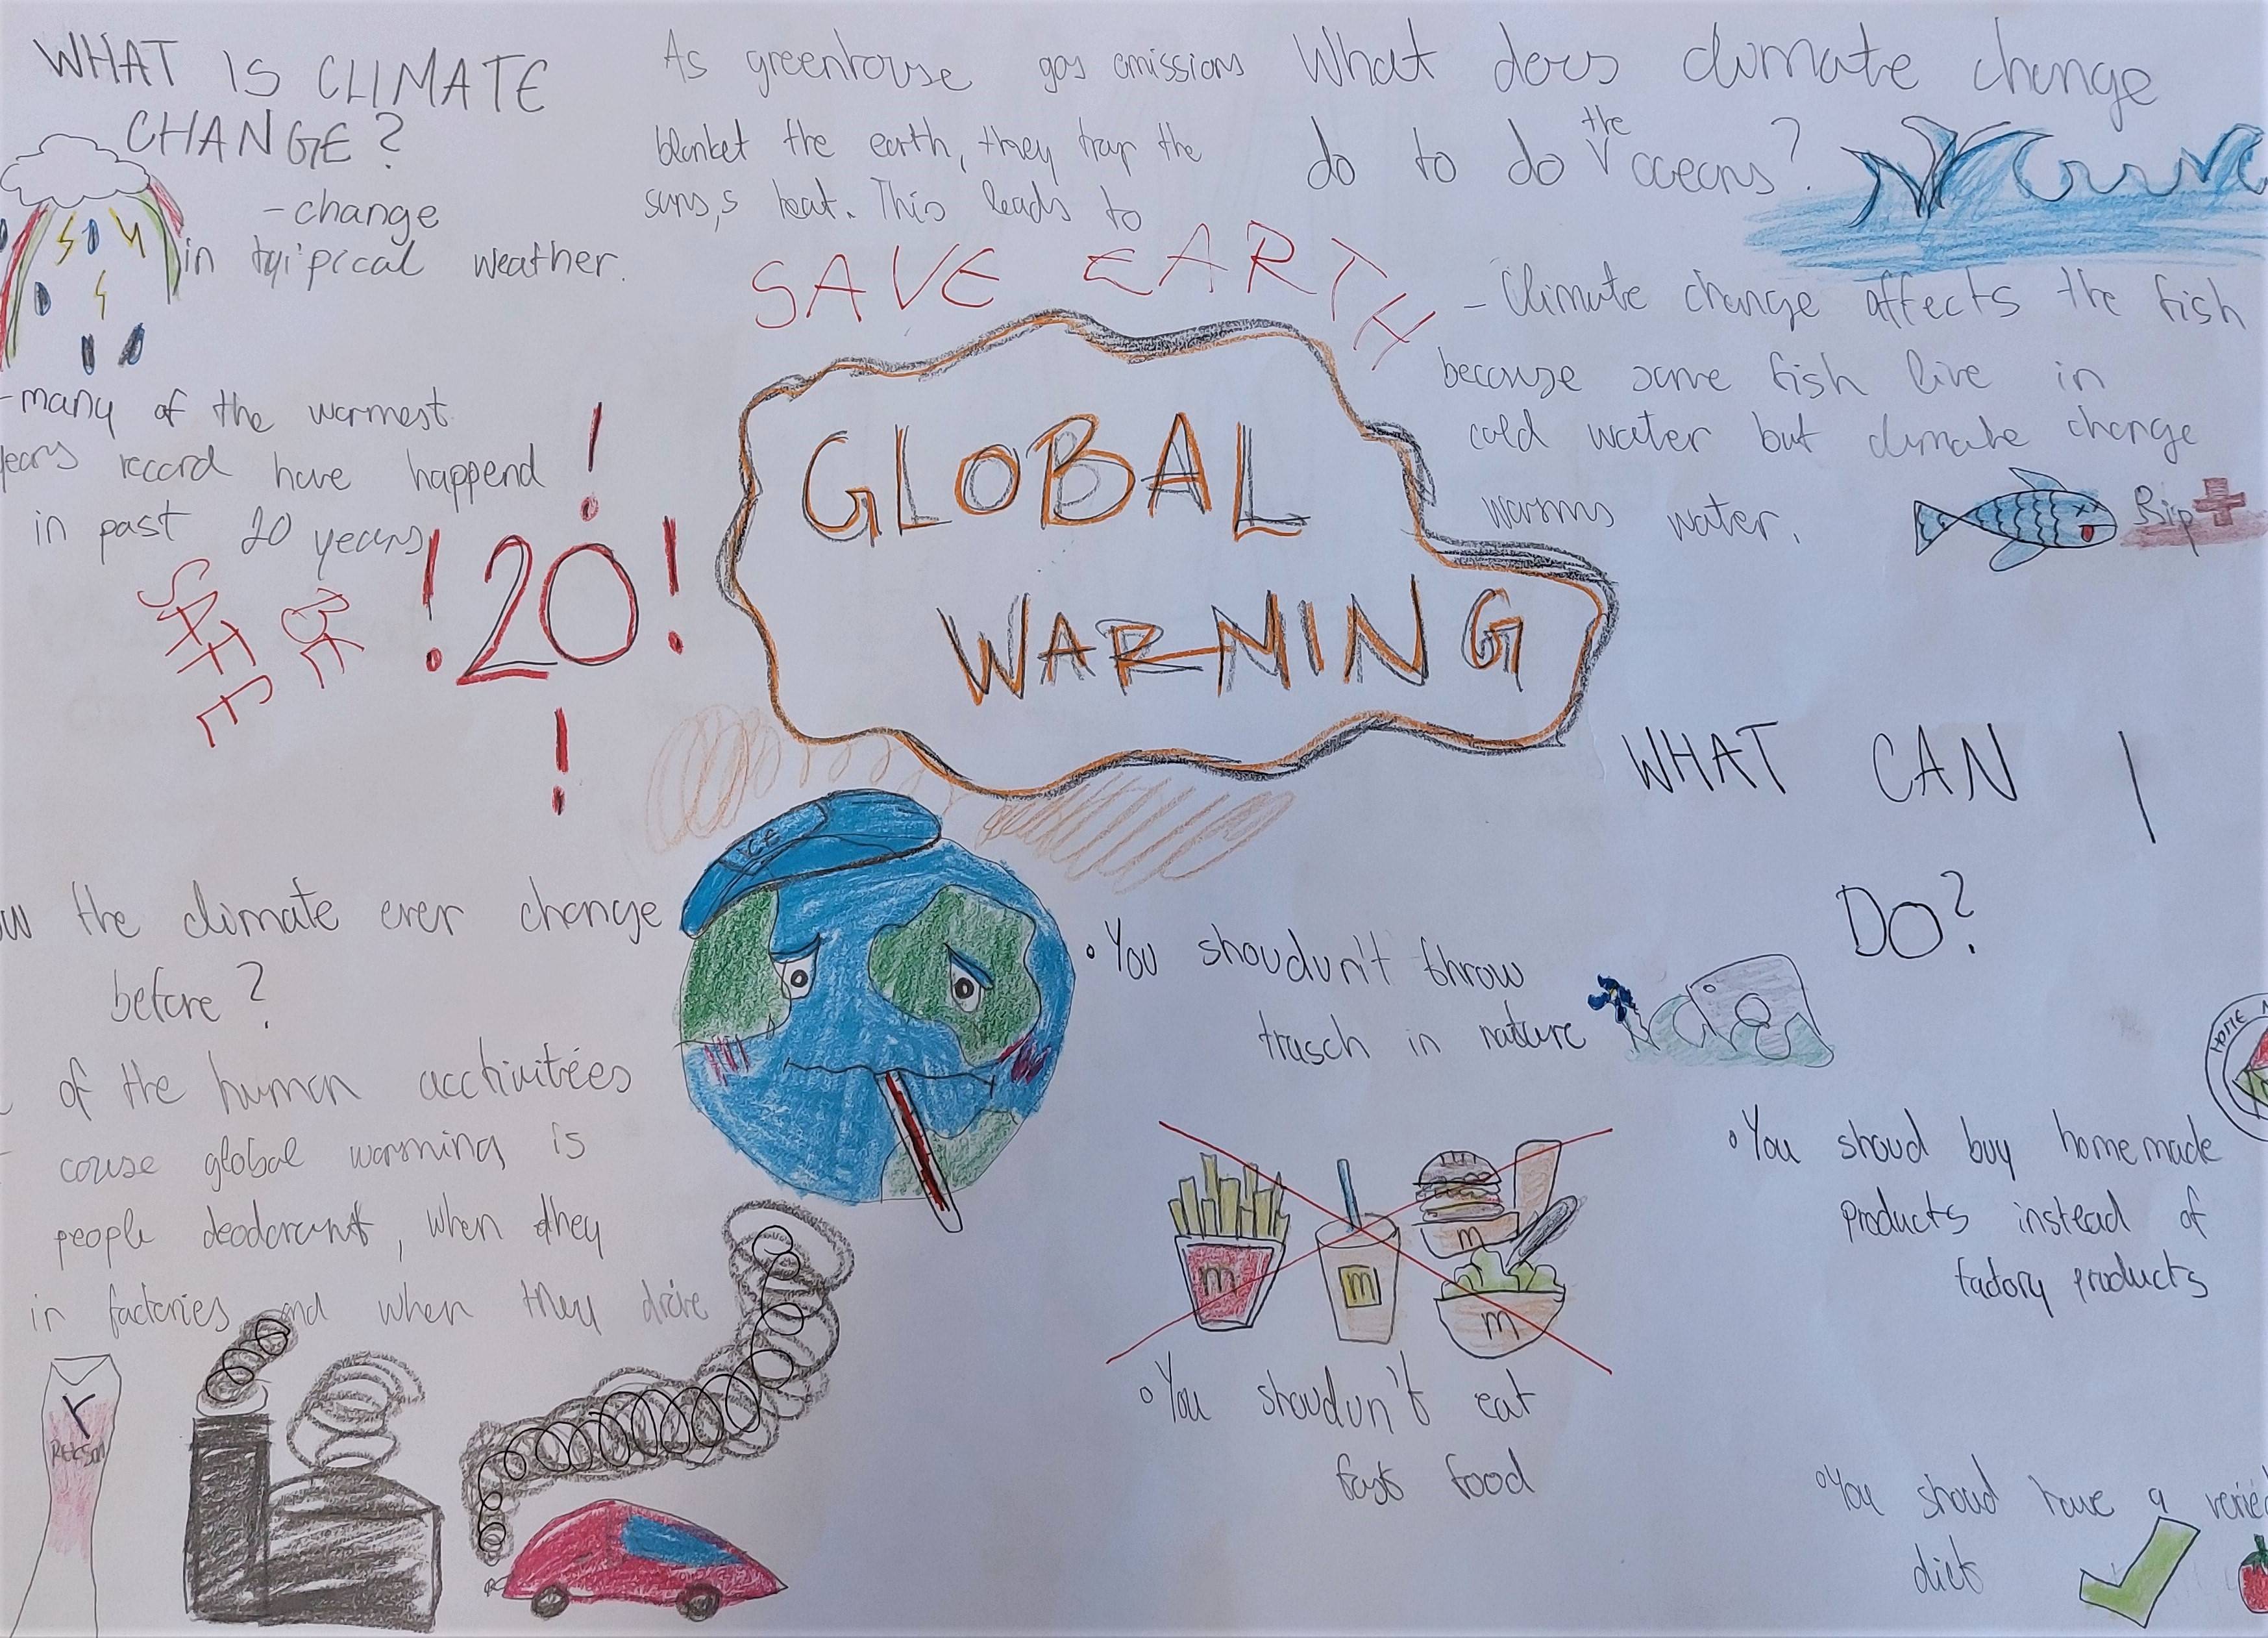 WHAT IS CLIMATE
CHANGE?
- change
in tyipical weather.
- many of the warmest
years record have happend
in past 20 years
BE
SAFE
!20!
As greenhouse gas emissions
blanket the earth, they trap the
suns,s heat. This leads to
SAVE EARTH
GLOBAL
WARNING
What does climate change
do to do the oceans?
- Climate change affects the fish
because some fish live in
cold water but climate change
warms water.
Rip
the climate ever change
before?
of the human acctivitées
couse global warming is
people deodorant, when they
in factories and when they drive
REKSONA
ICE
WHAT CAN I
DO?
• You shoudun't throw
trasch in nature
HOME
• You shoud buy homemade
products instead of
factory products
m
m
m
m
• You shoudun't eat
fast food
• You shoud have a
diet